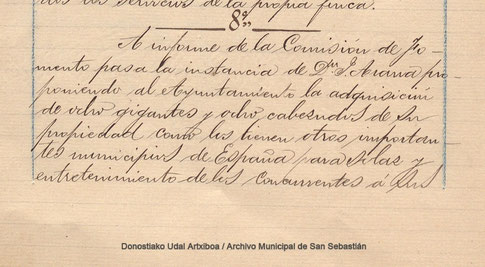 dos los servicios de la propia finca.
8º
A informe de la Comisión de Fo-
mento pasa la instancia de Dn. J. Arana pro-
poniendo al Ayuntamiento la adquisición
de ocho gigantes y ocho cabezudos de su
propiedad como los tienen otros importan
tes municipios de España para solaz y
entretenimiento de los concurrentes á sus
Donostiako Udal Artxiboa / Archivo Municipal de San Sebastián